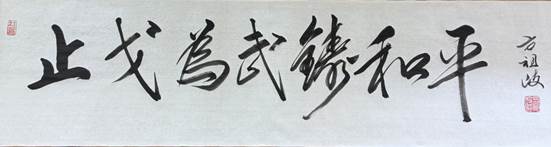 止戈為武鑄和平
方祖岐